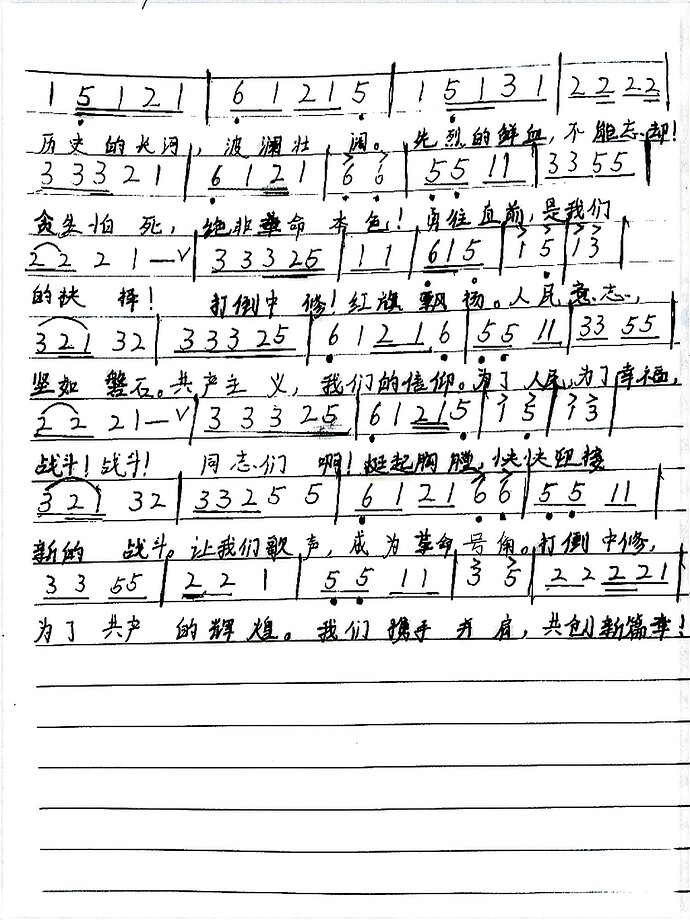 1 5 1 2 1 | 6 1 2 1 5 | 1 5 1 3 1 | 2 2 2 2
历史的长河，波澜壮阔。先烈的鲜血，不能忘却！
3 3 3 2 1 | 6 1 2 1 | 6 6 | 5 5 1 1 | 3 3 5 5
贪生怕死，绝非革命本色！勇往直前，是我们
2 2 2 1 — V | 3 3 3 2 5 | 1 1 | 6 1 5 | 1 5 | 1 3
的抉择！打倒中修！红旗飘扬。人民意志，
3 2 1 3 2 | 3 3 3 2 5 | 6 1 2 1 6 | 5 5 1 1 | 3 3 5 5
坚如磐石。共产主义，我们的信仰。为了人民，为了幸福，
2 2 2 1 — V | 3 3 3 2 5 | 6 1 2 1 5 | 1 5 | 1 3
战斗！战斗！同志们啊！挺起胸膛，快快迎接
3 2 1 3 2 | 3 3 2 5 5 | 6 1 2 1 6 6 | 5 5 1 1 |
新的战斗。让我们歌声，成为革命号角。打倒中修，
3 3 5 5 | 2 2 1 | 5 5 1 1 | 3 5 | 2 2 2 2 1 |
为了共产的辉煌。我们携手并肩，共创新篇章！